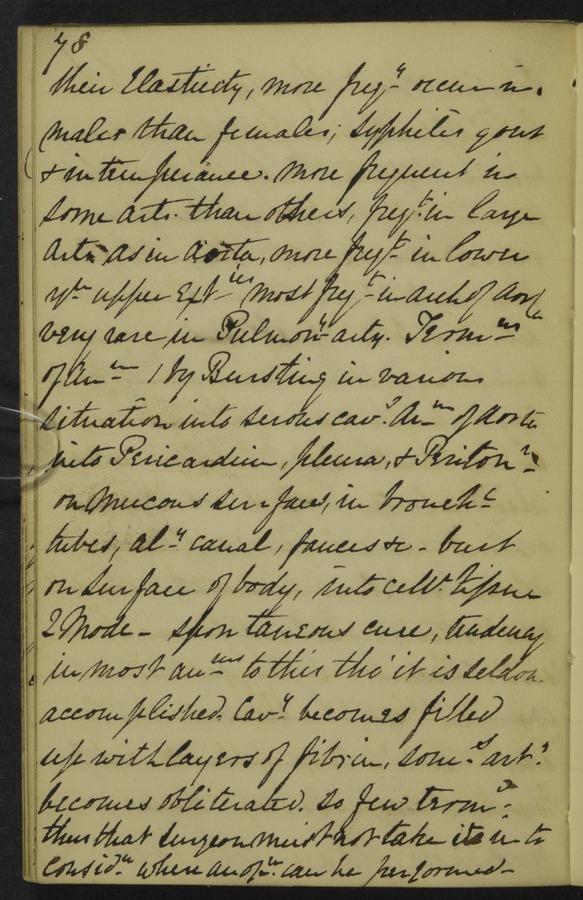 78
their Elasticity, more freqy occur in
males than females; syphilis gout
& intemperance. More frequent in
some arts. than others, freqt in large
arts as in Aorta, more freqt in lower
yn upper Exties most freqt in arch of Aorta
very rare in Pulmony arty. Termns
of Anm 1 by Bursting in various
situation into serous cavs Anm of Aorta
into Pericardium, pleura, & Periton
on Mucous surfaces, in bronchl
tubes, aly canal, fauces &c - burst
on surface of body, into cellr tissue
2 Mode - spontaneous cure, tendency
in most anms to this tho' it is seldom
accomplished. Cavy becomes filled
up with layers of fibrin, soms arty
becomes obliterated. So few term
thus that surgeon must not take it in to
considn where an opn can be performed -